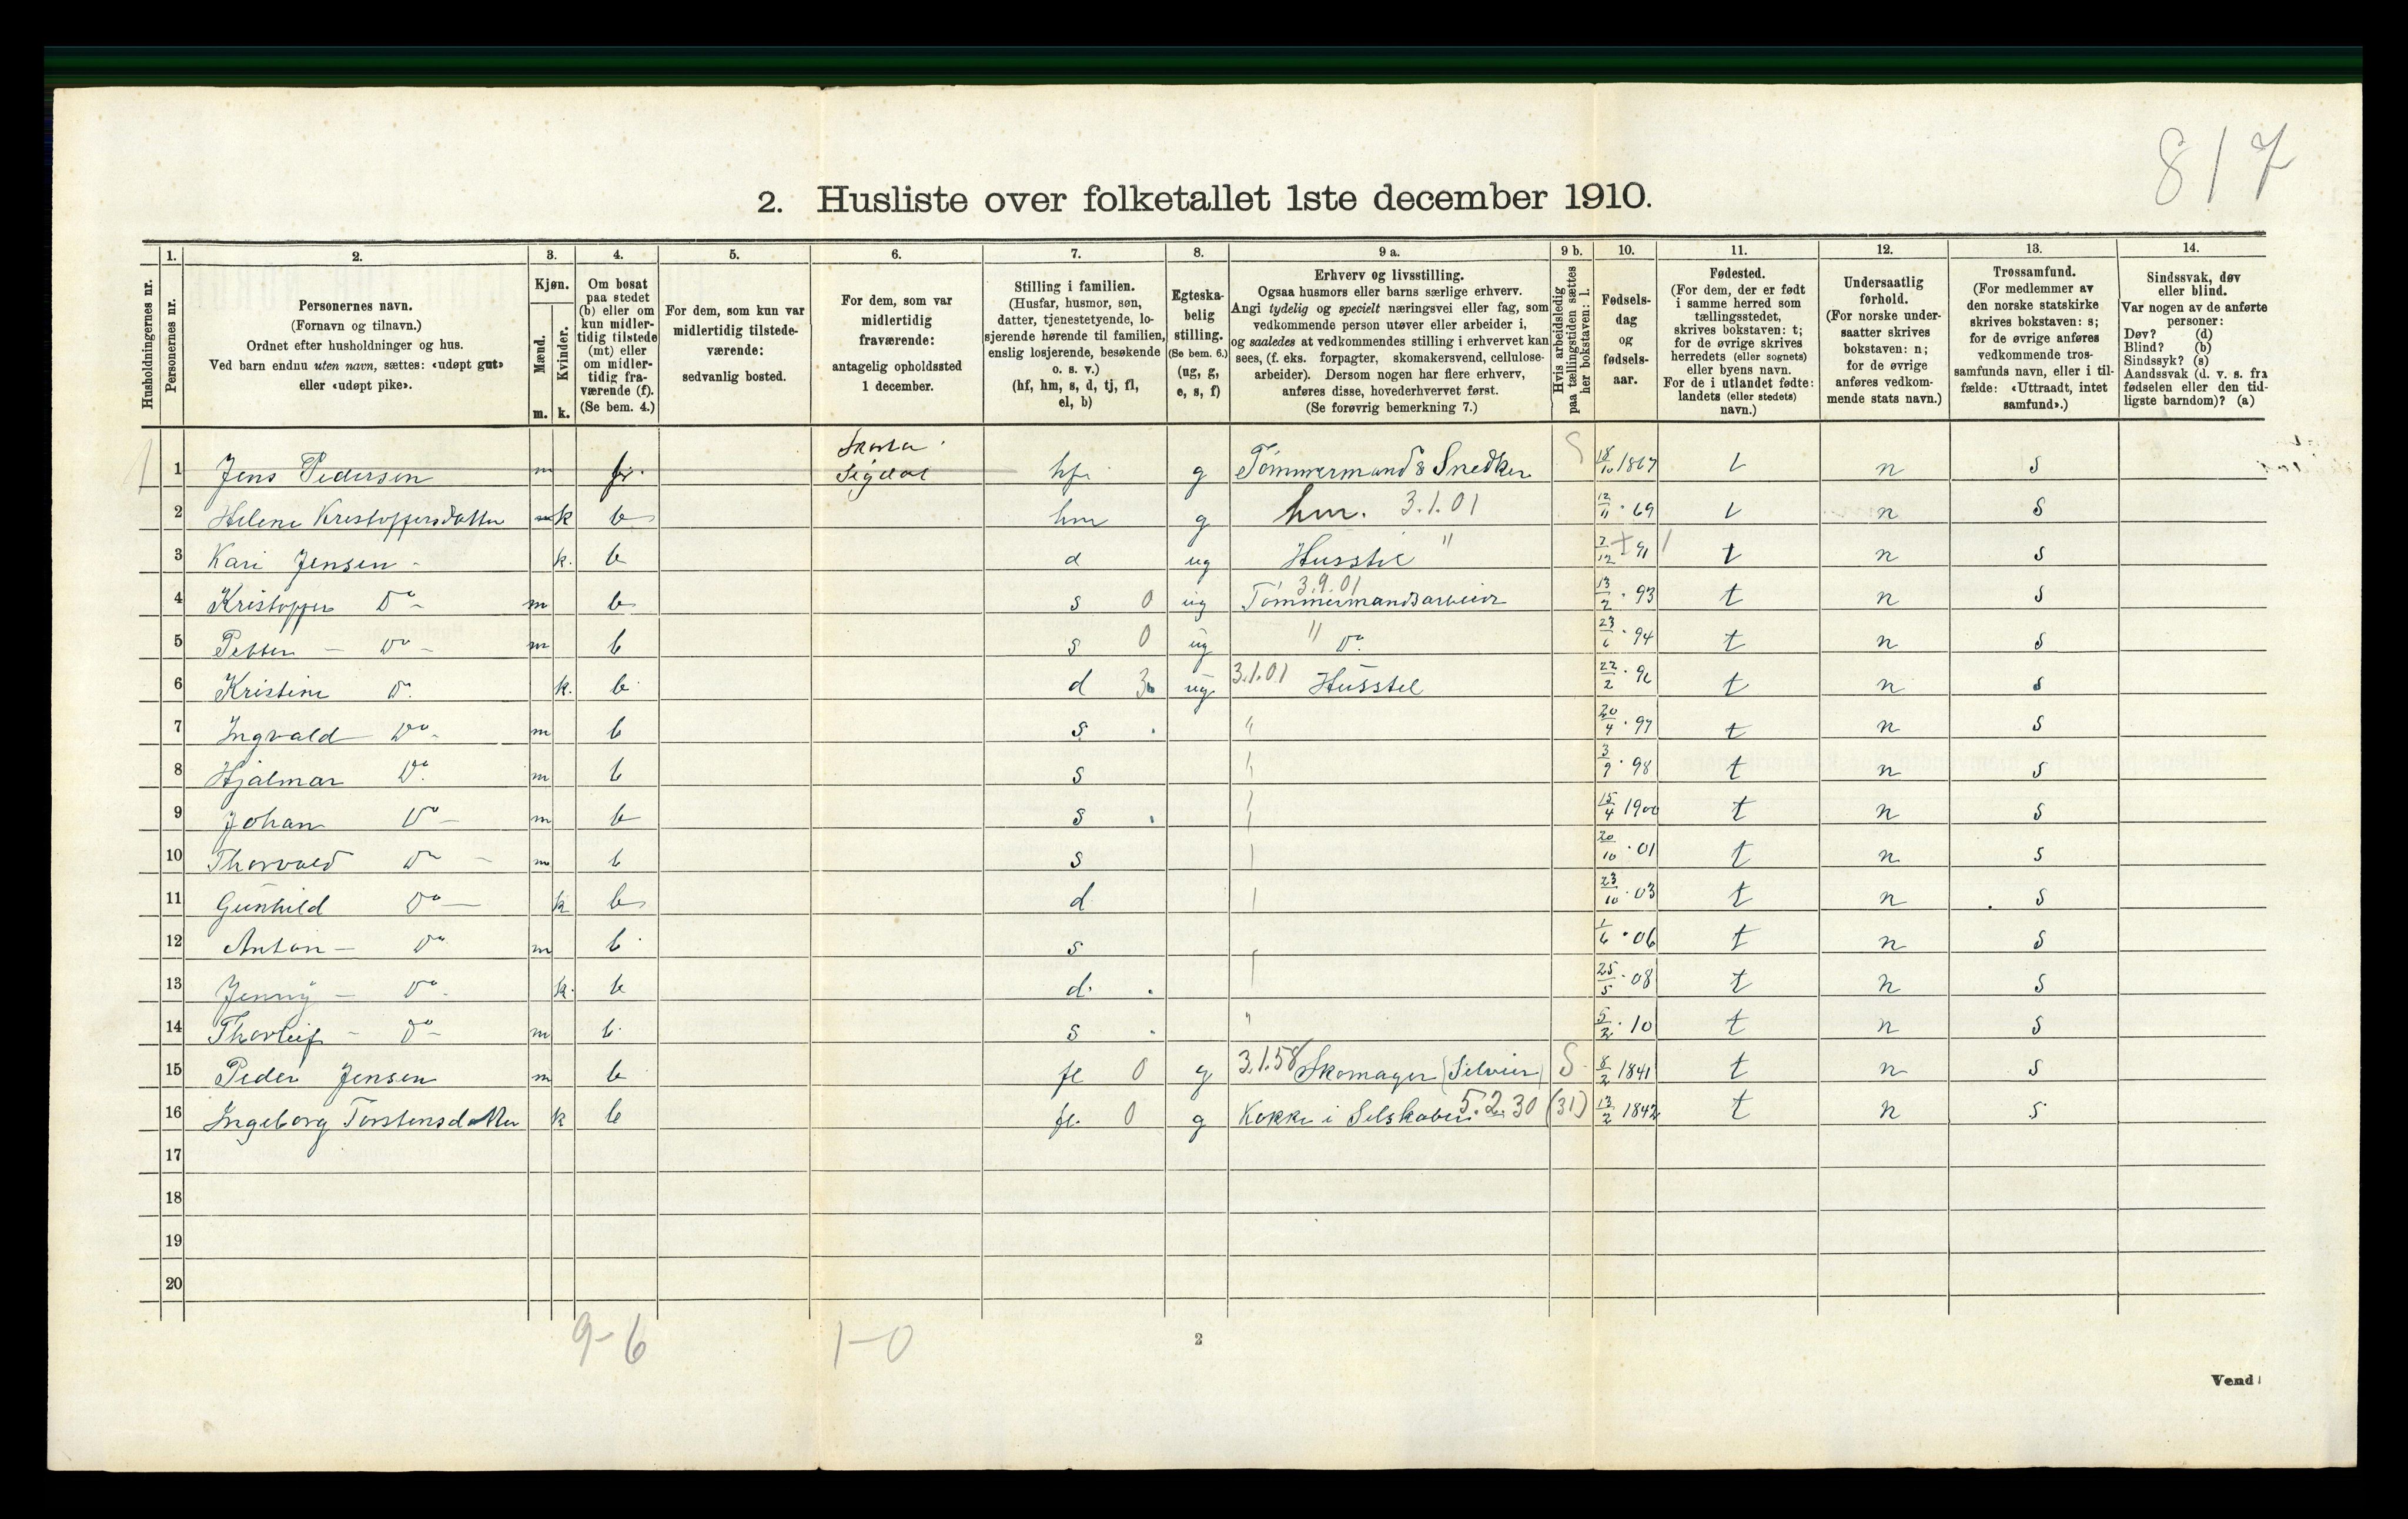 817
2. Husliste over folketallet 1ste december 1910.
Husholdningernes nr.
1. Personernes nr.
2. Personernes navn. (Fornavn og tilnavn.) Ordnet efter husholdninger og hus. Ved barn endnu uten navn, sættes: «udøpt gut» eller «udøpt pike».
3. Kjøn. Mænd. m. Kvinder. k.
4. Om bosat paa stedet (b) eller om kun midlertidig tilstede (mt) eller om midlertidig fraværende (f). (Se bem. 4.)
5. For dem, som kun var midlertidig tilstedeværende: sedvanlig bosted.
6. For dem, som var midlertidig fraværende: antagelig opholdssted 1 december.
7. Stilling i familien. (Husfar, husmor, søn, datter, tjenestetyende, losjerende hørende til familien, enslig losjerende, besøkende o. s. v.) (hf, hm, s, d, tj, fl, el, b)
8. Egteskabelig stilling. (Se bem. 6.) (ug, g, e, s, f)
9 a. Erhverv og livsstilling. Ogsaa husmors eller barns særlige erhverv. Angi tydelig og specielt næringsvei eller fag, som vedkommende person utøver eller arbeider i, og saaledes at vedkommendes stilling i erhvervet kan sees, (f. eks. forpagter, skomakersvend, cellulosearbeider). Dersom nogen har flere erhverv, anføres disse, hovederhvervet først. (Se forøvrig bemerkning 7.)
9 b. Hvis arbeidsledig paa tællingstiden sættes her bokstaven: l.
10. Fødselsdag og fødselsaar.
11. Fødested. (For dem, der er født i samme herred som tællingsstedet, skrives bokstaven: t; for de øvrige skrives herredets (eller sognets) eller byens navn. For de i utlandet fødte: landets (eller stedets) navn.)
12. Undersaatlig forhold. (For norske undersaatter skrives bokstaven: n; for de øvrige anføres vedkommende stats navn.)
13. Trossamfund. (For medlemmer av den norske statskirke skrives bokstaven: s; for de øvrige anføres vedkommende trossamfunds navn, eller i tilfælde: «Uttraadt, intet samfund».)
14. Sindssvak, døv eller blind. Var nogen av de anførte personer: Døv? (d) Blind? (b) Sindssyk? (s) Aandssvak (d. v. s. fra fødselen eller den tidligste barndom)? (a)
1 Jens Pedersen m f. Sigdal hf g Tømmermand & Snedker 18/10 1867 t n s
2 Helene Kristoffersdatter k b hm g hm. 3.1.01 12/11 69 t n s
3 Kari Jensen k. b d ug Husstel " 7/12 91 t n s
4 Kristoffer Do m b s 0 ug Tømmermandsarbeide 3.9.01 13/2 93 t n s
5 Petter Do m b s 0 ug " Do 23/6 94 t n s
6 Kristine Do k. b d ug 3.1.01 Husstel 22/2 96 t n s
7 Ingvald Do m b s " 20/4 97 t n s
8 Hjalmar Do m b s 3/9 98 t n s
9 Johan Do m b s 15/4 1900 t n s
10 Thorvald Do m b s 20/10 01 t n s
11 Gunhild Do k b d 23/10 03 t n s
12 Anton Do m b s 1/6 06 t n s
13 Jenny Do k. b d. 25/5 08 t n s
14 Thorleif Do m b s " 5/2 10 t n s
15 Peder Jensen m b fl 0 g 3.1.58 Skomager S 8/2 1841 t n s
16 Ingeborg Torstensdatter k b fl. 0 g Kokke i Selskaber 5.2.30 (31) 13/2 1842 t n s
17
18
19
20
9-6 1-0
2
Vend